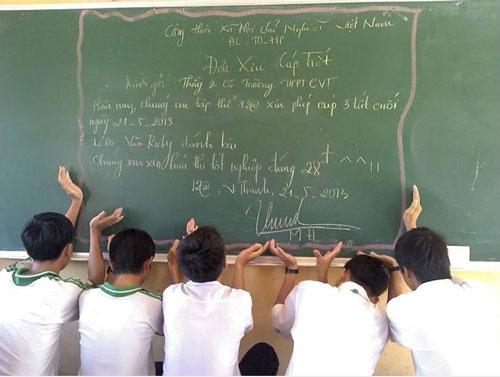 Cộng Hoà Xã Hội Chủ Nghĩa Việt Nam
ĐL - TD - HP
Đơn Xin Cúp Tiết
Kính gửi: Thầy & Cô trường THPT CVT
Hôm nay, chúng em tập thể 12@ xin phép cúp 3 tiết cuối
ngày 21-5-2013
Lí do: Vào Ruby đánh bài
Chúng em xin hứa thi tốt nghiệp đúng 28+ ^^!!
12@, V Thanh, 21-5-2013
M H